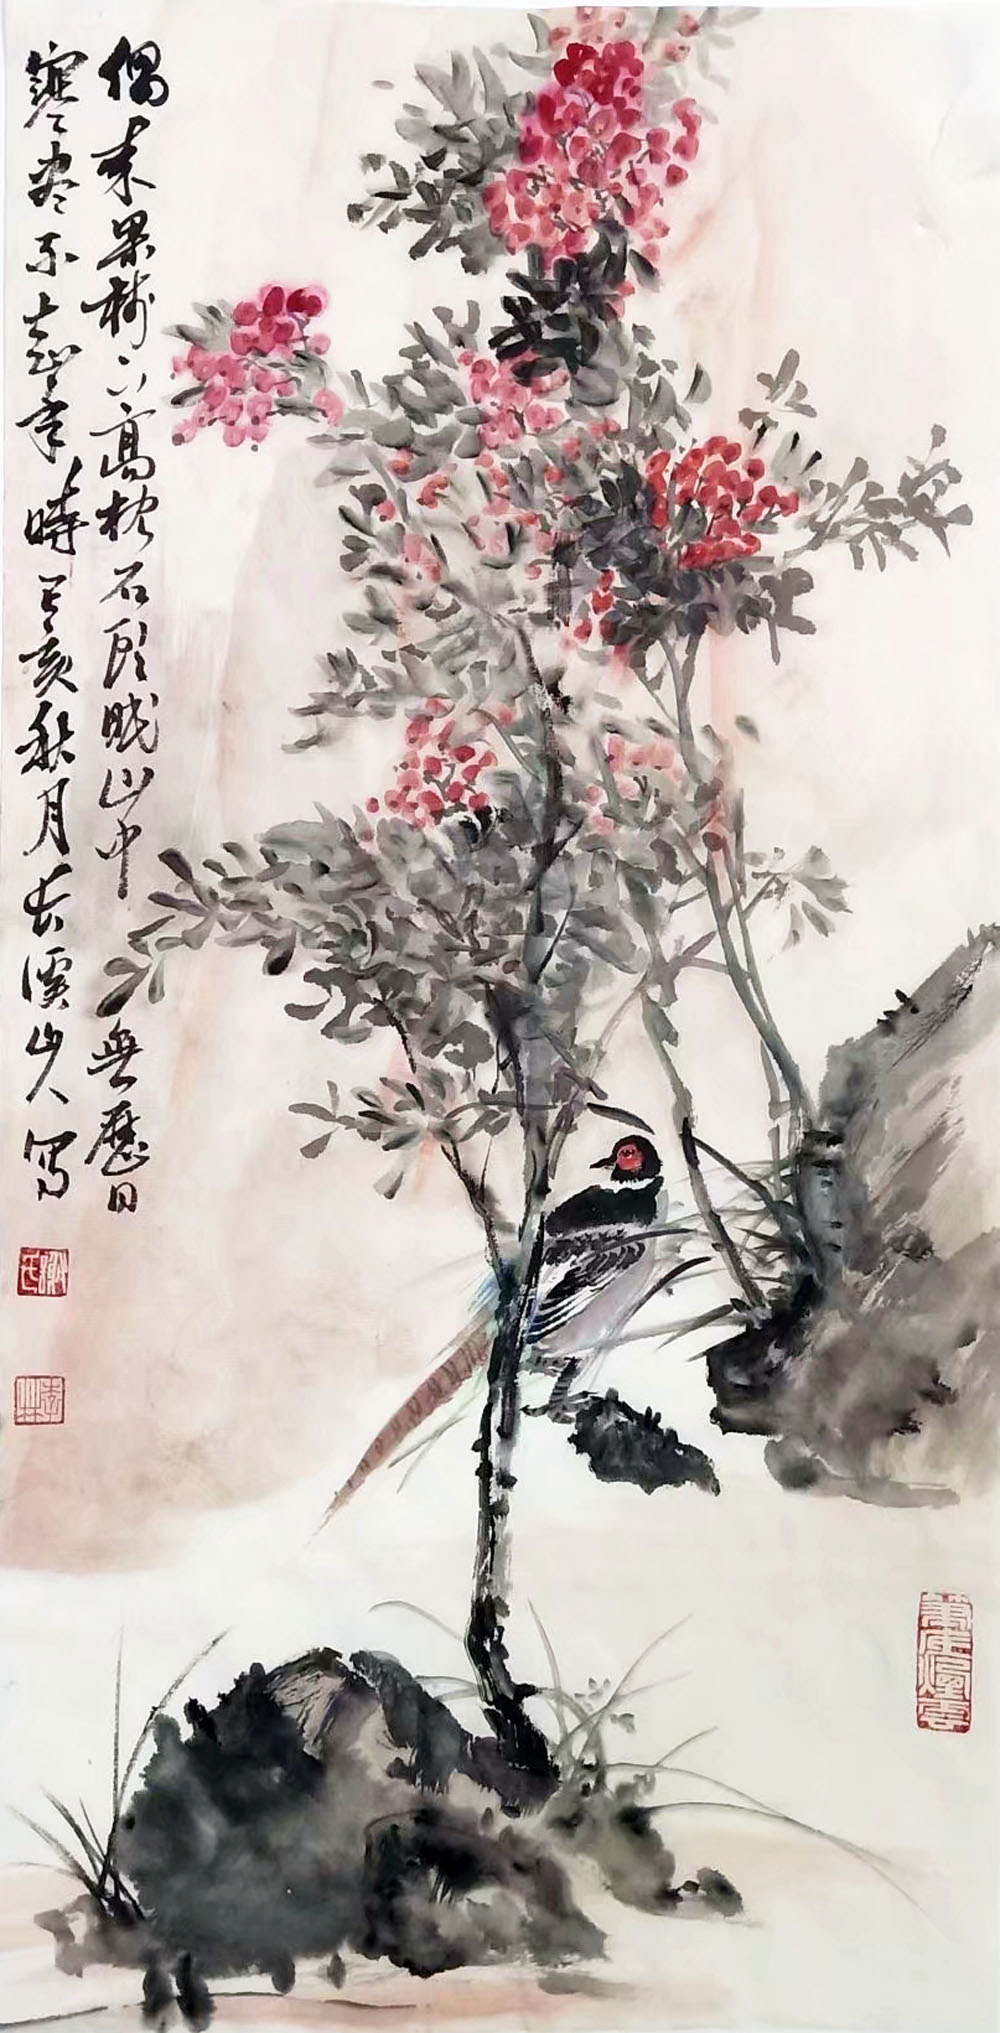 偶来果树下高枕石头眠山中無曆日
寒尽不知年時己亥秋月长溪山人写